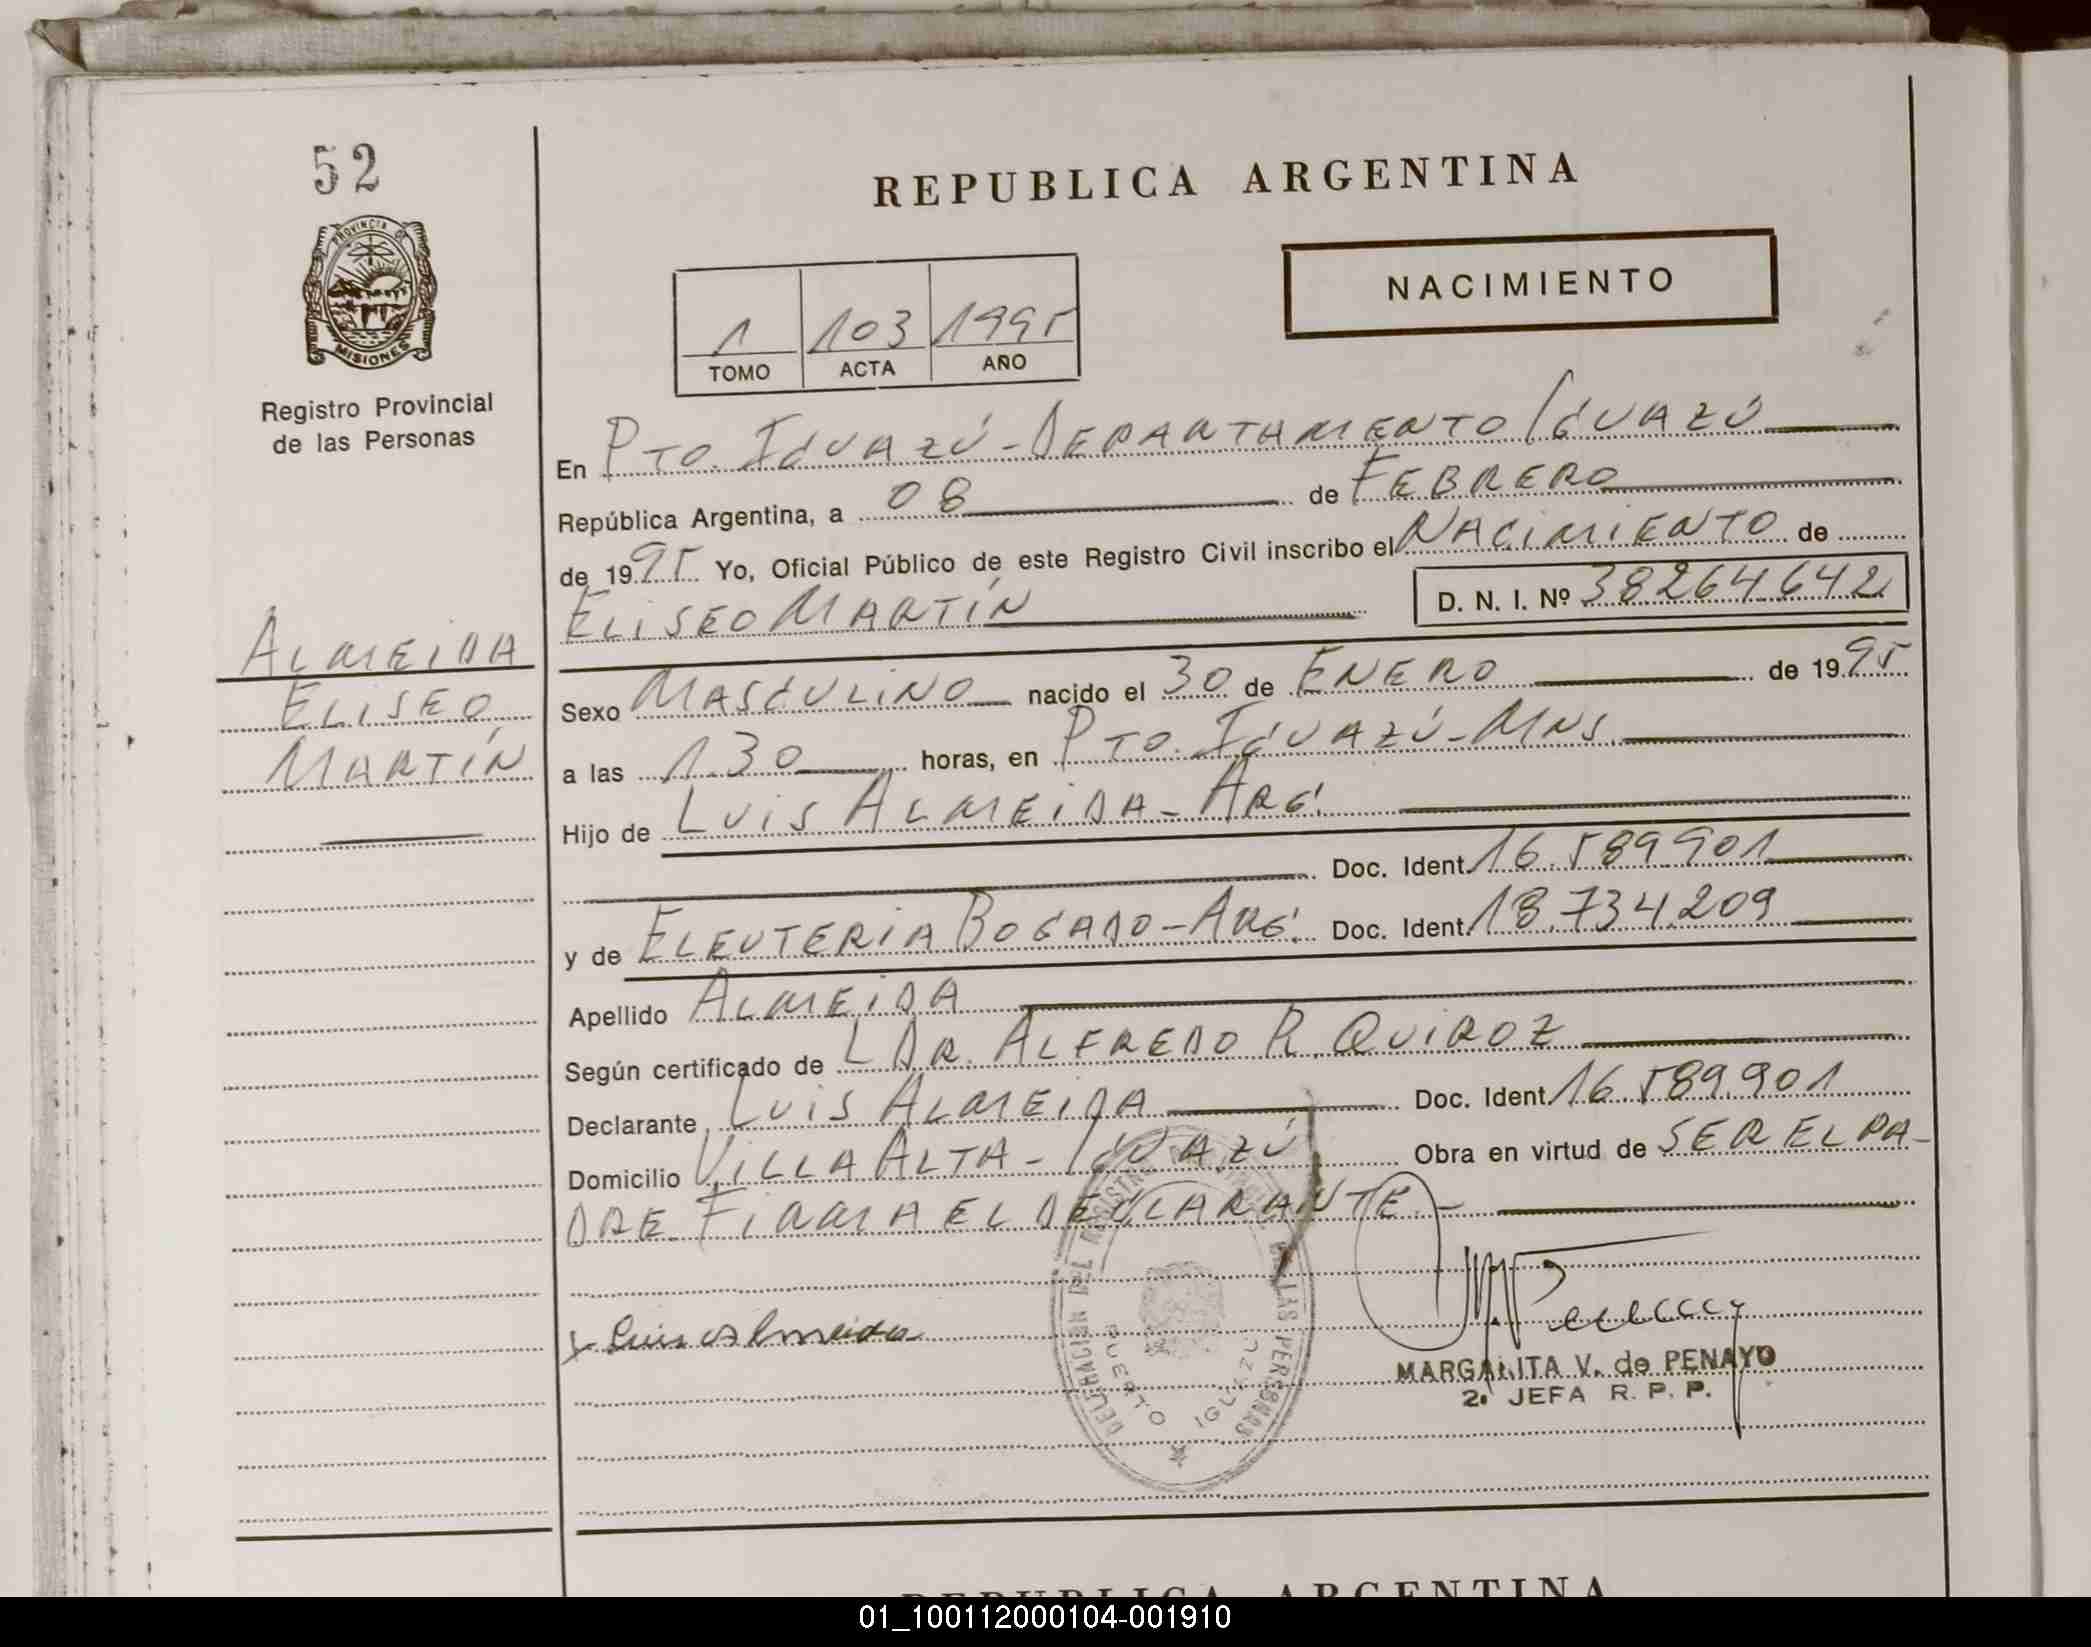 52
REPUBLICA ARGENTINA
NACIMIENTO
PROVINCIA DE
MISIONES
Registro Provincial
de las Personas
1 103 1995
TOMO ACTA AÑO
En PTO. IGUAZÚ - DEPARTAMENTO IGUAZÚ
República Argentina, a 08 de FEBRERO
de 1995 Yo, Oficial Público de este Registro Civil inscribo el NACIMIENTO de
ELISEO MARTÍN D. N. I. Nº 38264642
ALMEIDA
ELISEO
MARTÍN
Sexo MASCULINO nacido el 30 de ENERO de 1995
a las 1.30 horas, en PTO. IGUAZÚ - MNS.
Hijo de LUIS ALMEIDA - ARG.
Doc. Ident. 16.589.901
y de ELEUTERIA BOGADO - ARG. Doc. Ident. 18.734.209
Apellido ALMEIDA
Según certificado de L DR. ALFREDO R. QUIROZ
Declarante LUIS ALMEIDA Doc. Ident. 16.589.901
Domicilio VILLA ALTA - IGUAZÚ Obra en virtud de SER EL PA-
DRE. FIRMA EL DECLARANTE. -
x Luis Almeida
DELEGACION DEL REGISTRO DE LAS PERSONAS
PUERTO IGUAZU
MARGARITA V. de PENAYO
2. JEFA R. P. P.
REPUBLICA ARGENTINA
01_100112000104-001910